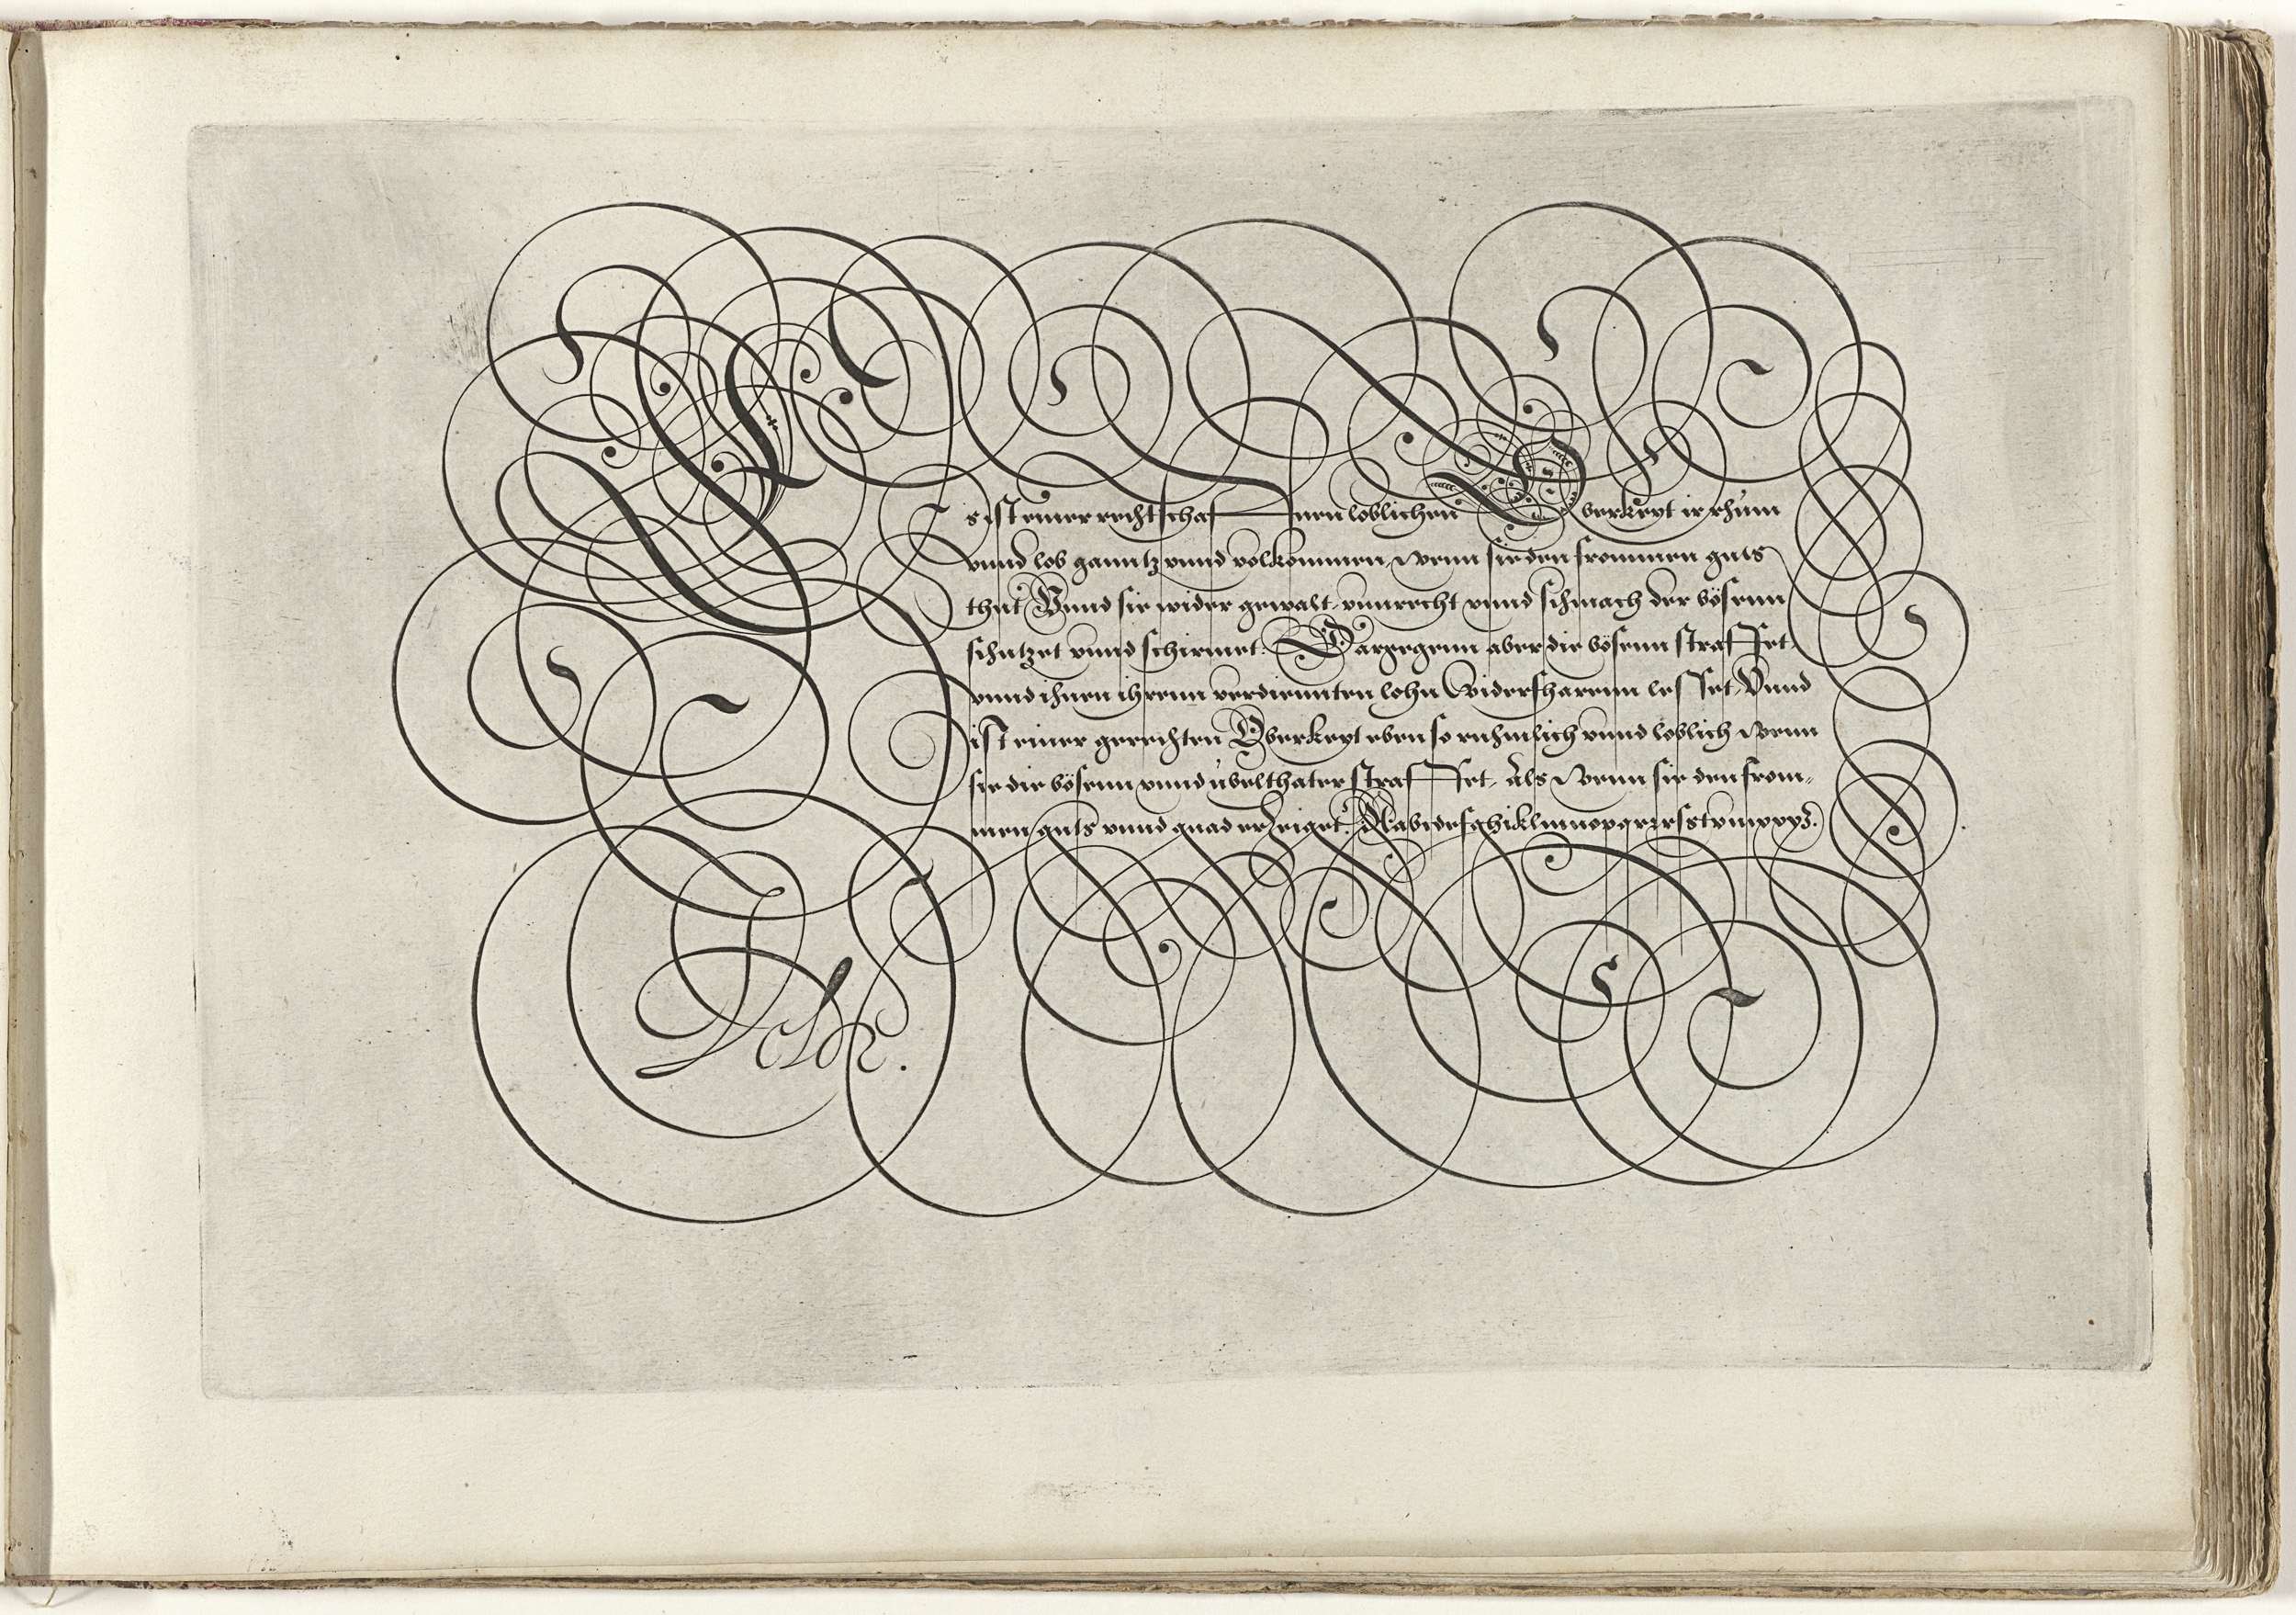 Es ist einer rechtschaffnen loblichen Oberkeyt ir rhům
vnnd lob ganntz vnnd volkommen, wenn sie den frommen guts
thut Vnnd sie wider gewalt, vnnrecht vnnd schmach der bösenn
schutzet vnnd schirmet. Dargegenn aber die bösenn straffet,
vnnd ihnen ihrenn verdiennten lohn widerfharenn lesset, Vnnd
ist einer gerechten Oberkeyt eben so ruhmlich vnnd loblich wenn
sie die bösenn vnnd übelthater straffet, Als wenn sie den from-
men guts vnnd gnad erzeiget. Aabcdefghiklmnopqrrsstvuwxyz.